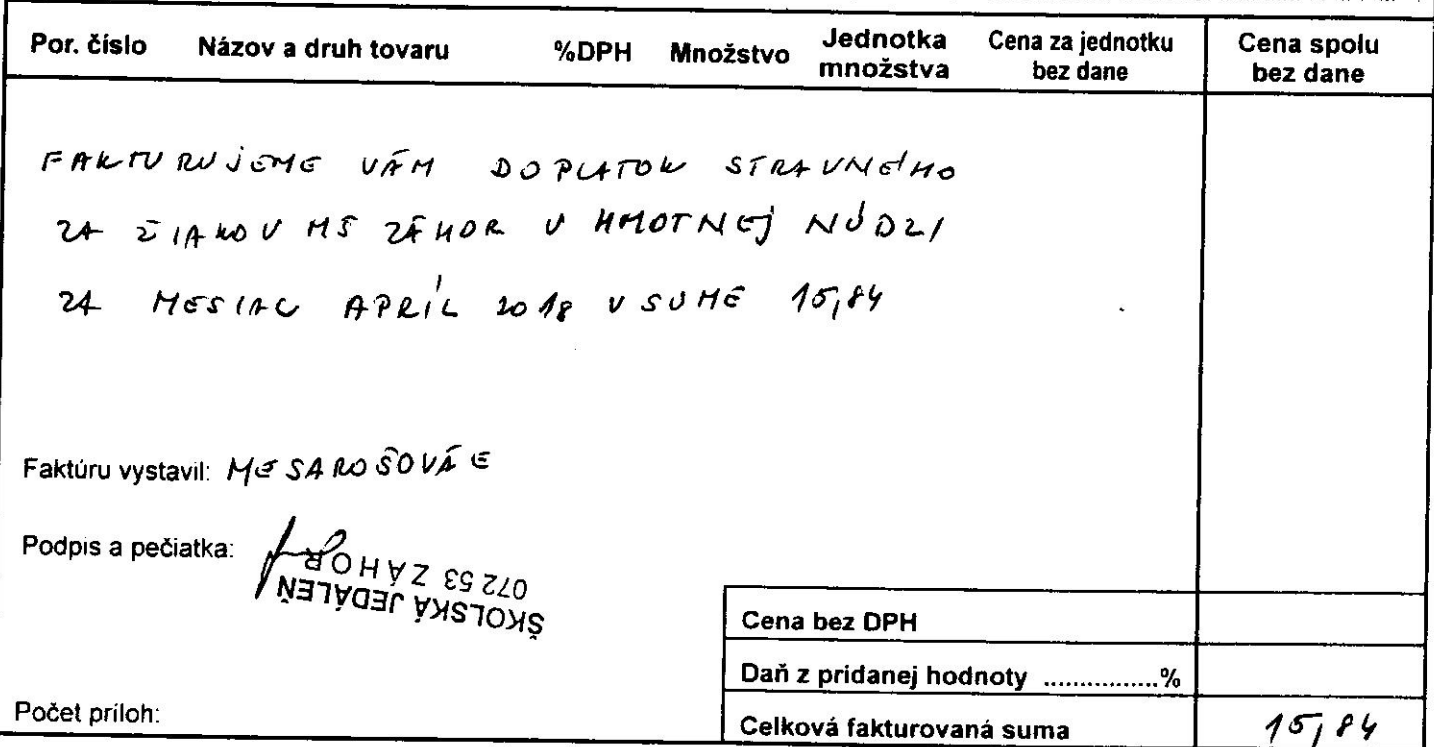 Por. číslo Názov a druh tovaru %DPH Množstvo Jednotka množstva Cena za jednotku bez dane Cena spolu bez dane
FAKTURUJEME VÁM DOPLATOK STRAVNÉHO
ZA ŽIAKOV MŠ ZÁHOR V HMOTNEJ NÚDZI
ZA MESIAC APRÍL 2018 V SUME 15,84
Faktúru vystavil: MESAROŠOVÁ E
Podpis a pečiatka:
ŠKOLSKÁ JEDÁLEŇ
072 53 ZÁHOR
Cena bez DPH
Daň z pridanej hodnoty ................%
Počet príloh:
Celková fakturovaná suma 15,84